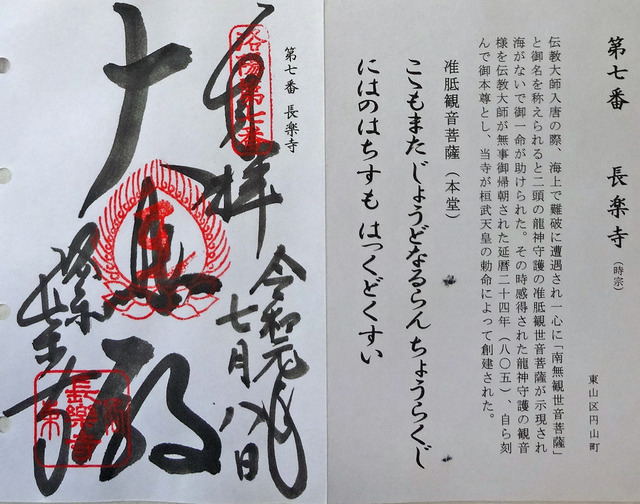 第七番 長楽寺 (時宗)
東山区円山町
伝教大師入唐の際、海上で難破に遭遇され一心に「南無観世音菩薩」
と御名を称えられると二頭の龍神守護の准胝観世音菩薩が示現され
海がないで御一命が助けられた。その時感得された龍神守護の観音
様を伝教大師が無事御帰朝された延暦二十四年(八〇五)、自ら刻
んで御本尊とし、当寺が桓武天皇の勅命によって創建された。
准胝観音菩薩(本堂)
こゝもまた じょうどなるらん ちょうらくじ
にはのはちすも はっくどくすい
第七番 長楽寺
洛陽第七番
奉拝
令和元年
七月八日
大悲殿
長楽寺